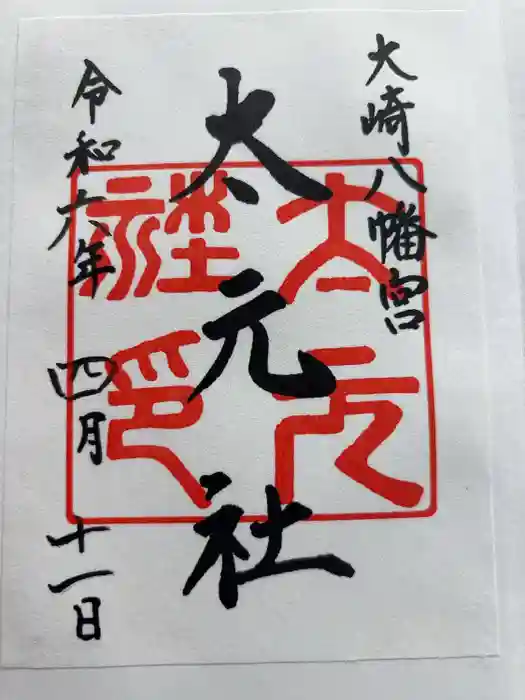 大崎八幡宮
太元社
太元社印
令和六年 四月 十一日